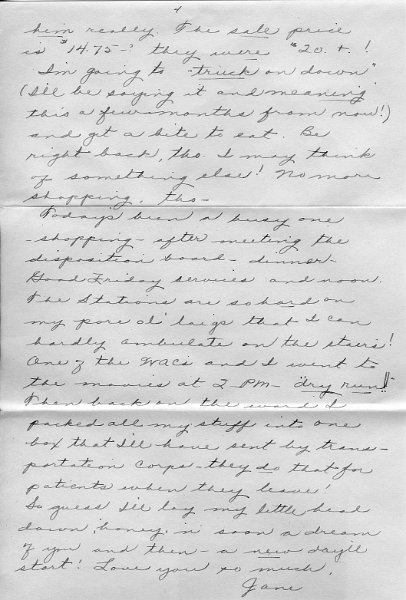 4
him really. The sale price
is $14.75-? they were $20. + !
I'm going to "truck on down"
(I'll be saying it and meaning
this a few months from now!)
and get a bite to eat. Be
right back, tho. I may think
of something else! No more
shopping, tho-
Today's been a busy one
-shopping- after meeting the
disposition board- dinner-
Good Friday services and noon.
The Stations are so hard on
my pore ol' laigs that I can
hardly ambulate on the stairs!
One of the WACs and I went to
the movies at 2-PM- "dry run"!!
Then back on the ward I
packed all my stuff into one
box that I'll have sent by trans-
portation corps- they do that for
patients when they leave!
So guess I'll lay my little head
down, honey, 'n soon a dream
of you and then- a new day'll
start! Love you so much,
Jane